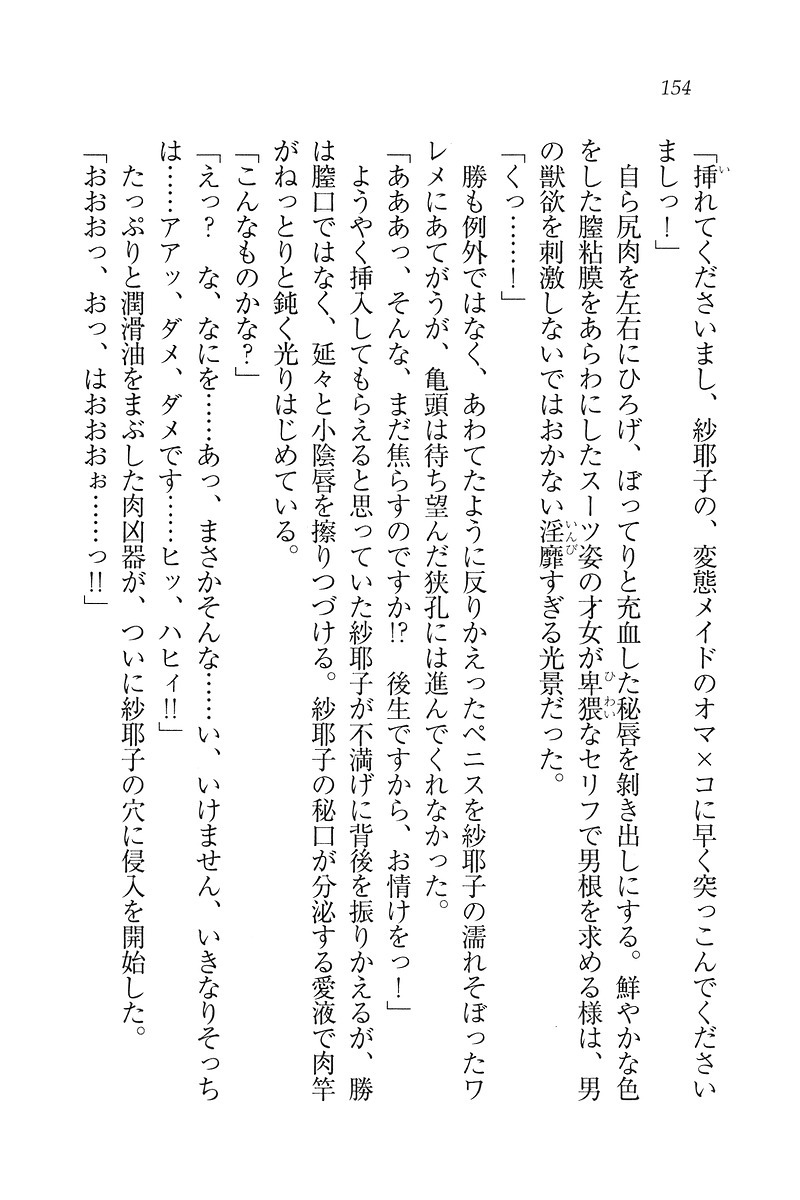 154
「挿れてくださいまし、紗耶子の、変態メイドのオマ×コに早く突っこんでください
ましっ！」
　自ら尻肉を左右にひろげ、ぼってりと充血した秘唇を剥き出しにする。鮮やかな色
をした膣粘膜をあらわにしたスーツ姿の才女が卑猥なセリフで男根を求める様は、男
の獣欲を刺激しないではおかない淫靡すぎる光景だった。
「くっ……！」
　勝も例外ではなく、あわてたように反りかえったペニスを紗耶子の濡れそぼったワ
レメにあてがうが、亀頭は待ち望んだ狭孔には進んでくれなかった。
「あああっ、そんな、まだ焦らすのですか!?　後生ですから、お情けをっ！」
　ようやく挿入してもらえると思っていた紗耶子が不満げに背後を振りかえるが、勝
は膣口ではなく、延々と小陰唇を擦りつづける。紗耶子の秘口が分泌する愛液で肉竿
がねっとりと鈍く光りはじめている。
「こんなものかな？」
「えっ？　な、なにを……あっ、まさかそんな……い、いけません、いきなりそっち
は……アアッ、ダメ、ダメです……ヒッ、ハヒィ!!」
　たっぷりと潤滑油をまぶした肉凶器が、ついに紗耶子の穴に侵入を開始した。
「おおおっ、おっ、はおおおぉ……っ!!」